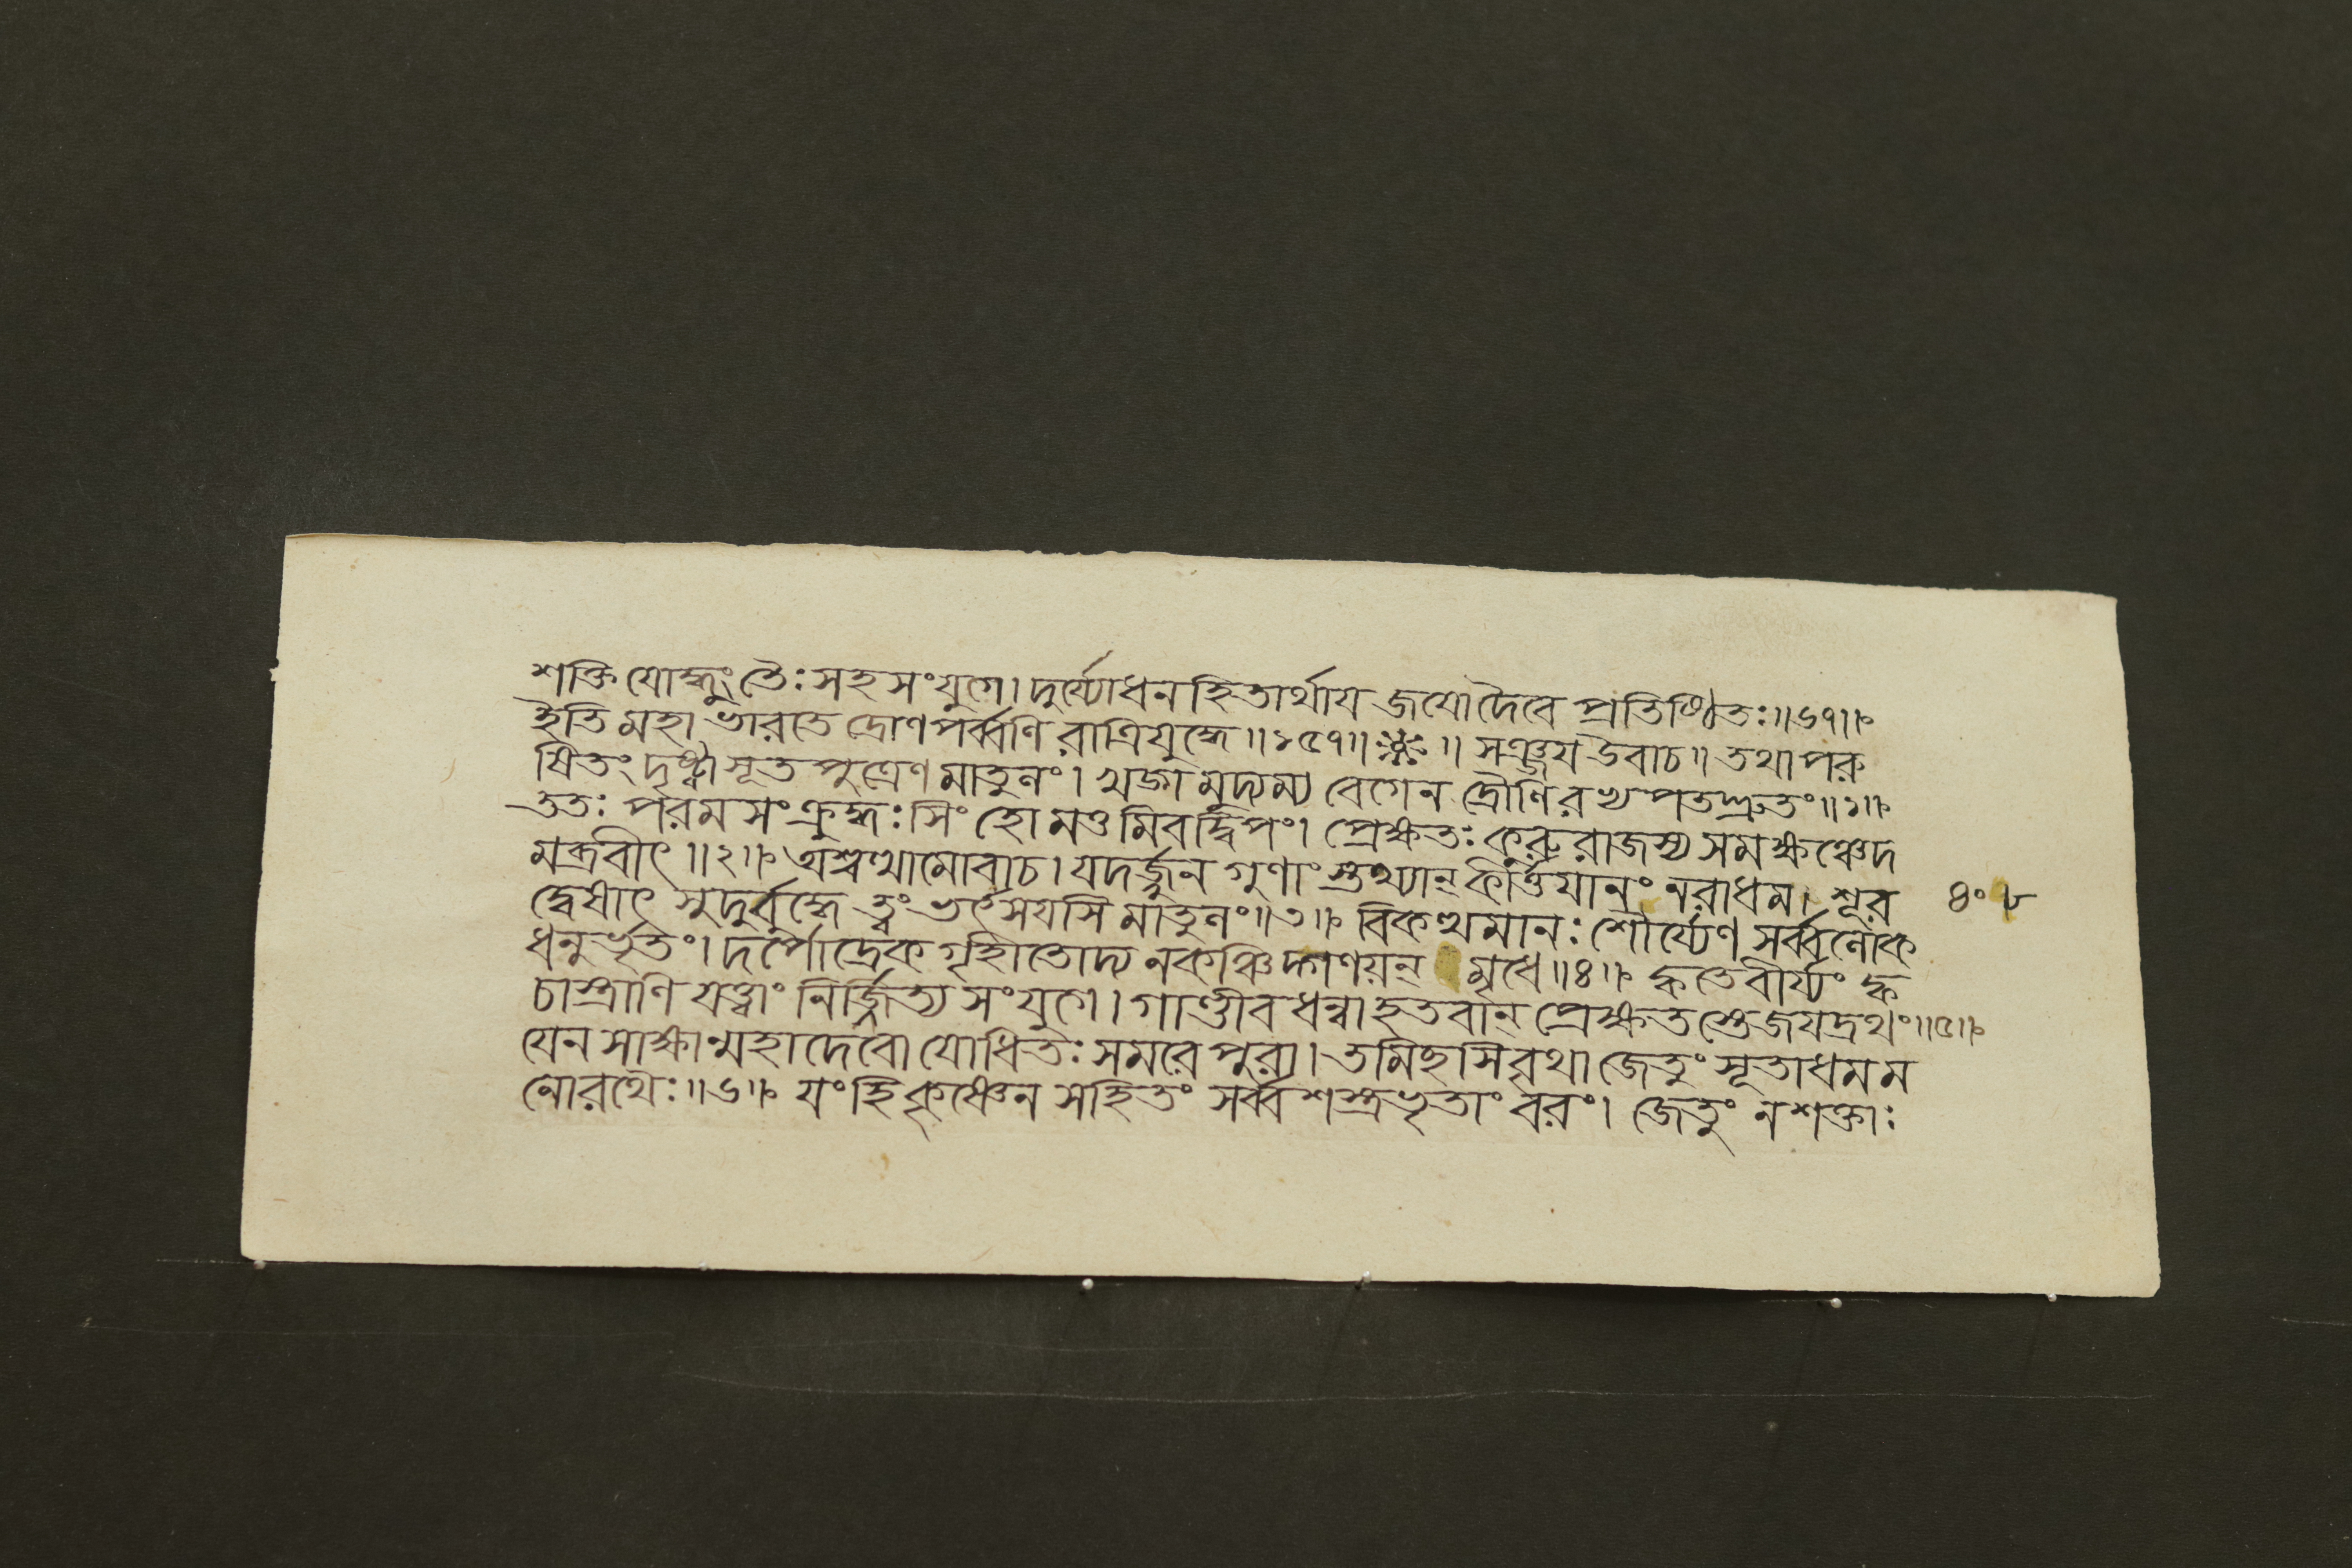 শক্তি যোদ্ধুং তৈঃ সহ সংযুগে। দুর্য্যোধন হিতার্থায জযো দৈবে প্রতিষ্ঠিতঃ॥৬৭॥
ইতি মহাভারতে দ্রোণপর্ব্বণি রাত্রিযুদ্ধে॥১৫৭॥ ॥ সঞ্জয উবাচ॥ তথা পরু
ষিতং দৃষ্ট্বা সূতপুত্রেণ মাতুলং। খড্গমুদ্যম্য বেগেন দ্রৌণিরভ্যপতদ্দ্রুতং॥১॥
ততঃ পরমসংক্রুদ্ধঃ সিংহো মত্তমিব দ্বিপং। প্রেক্ষতঃ কুরুরাজস্য সমক্ষঞ্চেদ
মব্রবীৎ॥২॥ অশ্বত্থামোবাচ। যদর্জ্জুন গুণাংস্তথ্যান্ কীর্ত্তিযানং নরাধম। শূর
দ্বেষাৎ সুদুর্বুদ্ধে ত্বং ভর্ৎসযসি মাতুলং॥৩॥ বিকত্থমানঃ শৌর্য্যেণ সর্ব্বলোক
ধনুর্ভৃতং। দর্পোদ্রেক গৃহীতোদ্য ন কঞ্চিদ্গণয়ন্ মৃধে॥৪॥ ক্ব তে বীর্য্যং ক্ব
চাস্ত্রাণি যত্ত্বাং নির্জ্জিত্য সংযুগে। গাণ্ডীবধন্বা হতবান্ প্রেক্ষতস্তে জযদ্রথং॥৫॥
যেন সাক্ষান্মহাদেবো যোধিতঃ সমরে পুরা। তমিহসি বৃথা জেতুং সূতাধম ম
নোরথৈঃ॥৬॥ যং হি কৃষ্ণেন সহিতং সর্ব্বশস্ত্রভৃতাং বরং। জেতুং ন শক্তাঃ
৪০৮